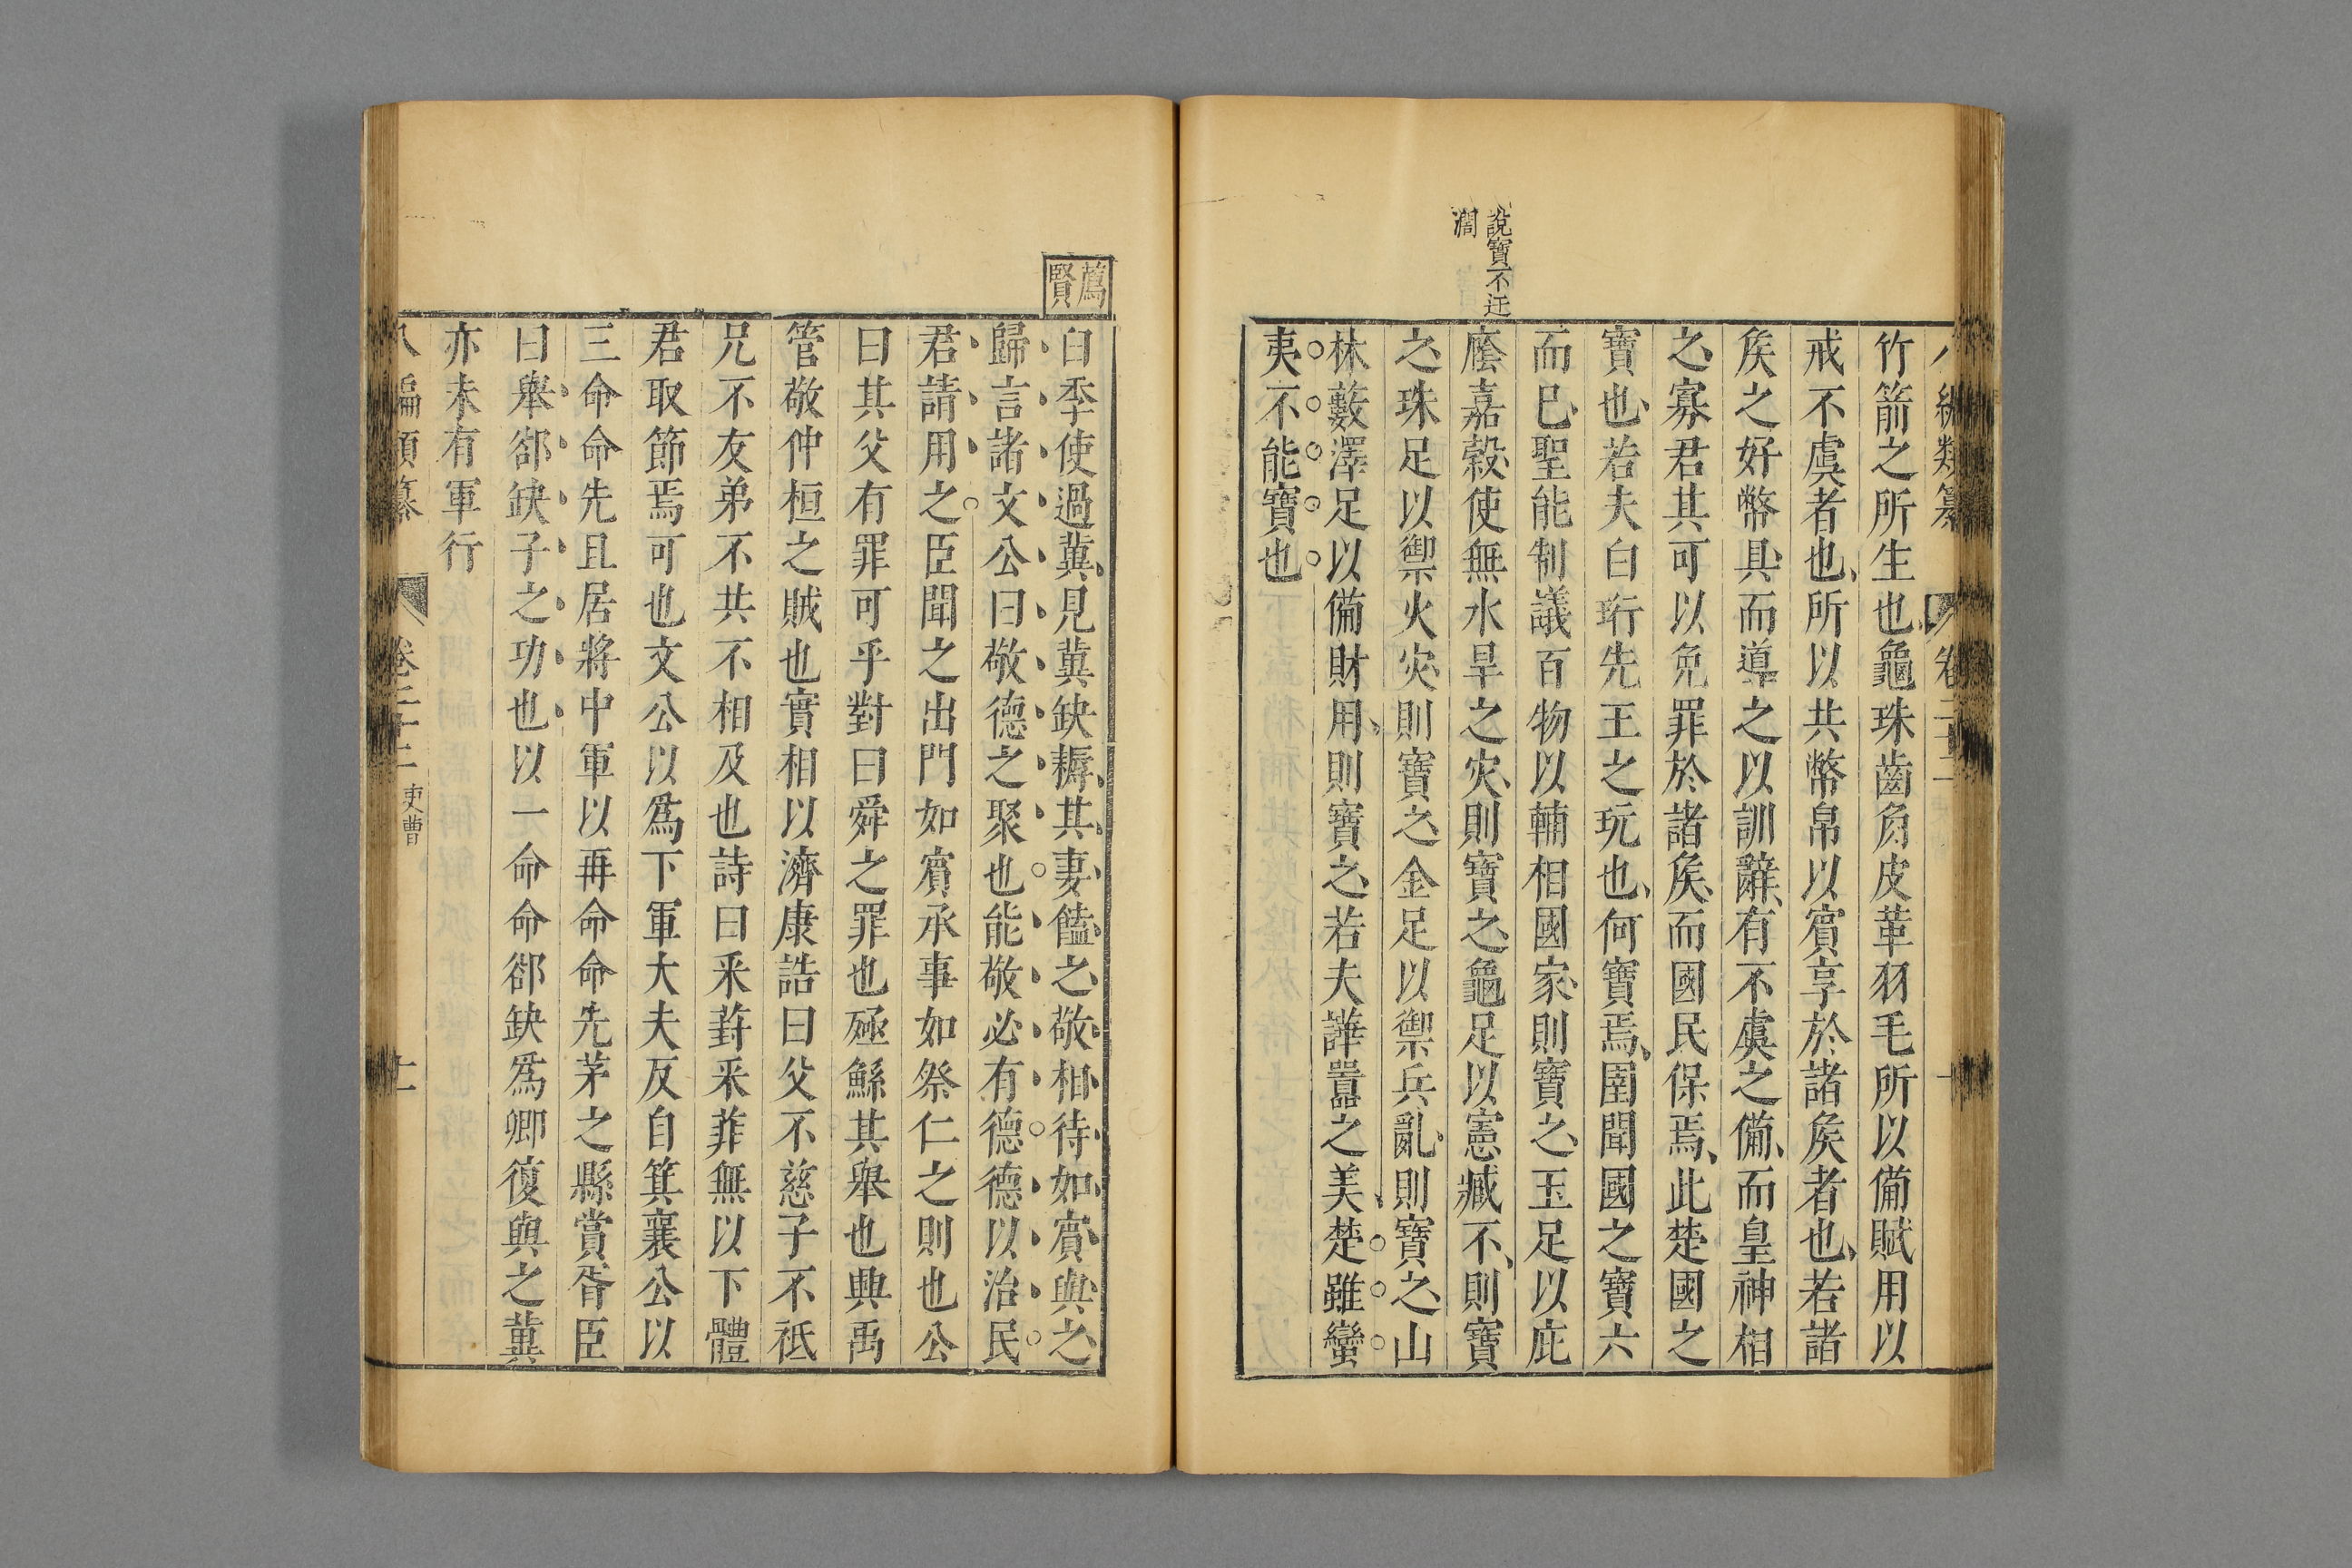 編類纂 卷二十二
竹箭之所生也龜珠齒角皮革羽毛所以備賦用以
戒不虞者也所以共幣帛以賓享於諸矦者也若諸
矦之好幣具而導之以訓辭有不虞之備而皇神相
之寡君其可以免罪於諸矦而國民保焉此楚國之
寶也若夫白珩先王之玩也何寶焉圉聞國之寶六
而已聖能制議百物以輔相國家則寶之玉足以庇
廕嘉穀使無水旱之灾則寶之龜足以憲臧不則寶
之珠足以禦火灾則寶之金足以禦兵亂則寶之山
林藪澤足以備財用則寶之若夫譁囂之美楚雖蠻
夷不能寶也
說寶不迂
濶
薦
賢
臼季使過冀見冀缺耨其妻饁之敬相待如賓與之
歸言諸文公曰敬德之聚也能敬必有德德以治民
君請用之臣聞之出門如賓承事如祭仁之則也公
曰其父有罪可乎對曰舜之罪也殛鯀其舉也興禹
管敬仲桓之賊也實相以濟康誥曰父不慈子不祗
兄不友弟不共不相及也詩曰釆葑釆菲無以下體
君取節焉可也文公以爲下軍大夫反自箕襄公以
三命命先且居將中軍以再命命先茅之縣賞胥臣
曰舉郤缺子之功也以一命命郤缺爲卿復與之冀
亦未有軍行
八編類纂 卷二十二 吏曹